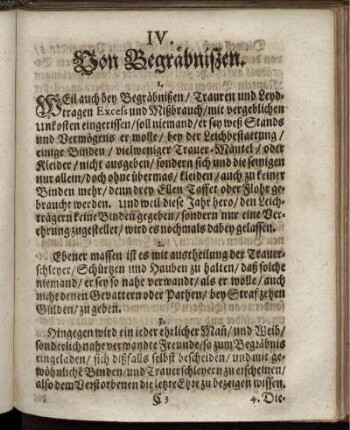 IV.
Von Begräbnißen.
1.
WEil auch bey Begräbnißen/ Trauren und Leyd-
tragen Excess und Mißbrauch/ mit vergeblichen
unkosten eingerissen/ soll niemand/ er sey weß Stands
und Vermögens er wolle/ bey der Leichbestattung/
einige Binden/ vielweniger Trauer-Mäntel/ oder
Kleider/ nicht ausgeben/ sondern sich und die seinigen
nur allein/ doch ohne übermas/ kleiden/ auch zu keiner
Binden mehr/ denn drey Ellen Taffet oder Flohr ge-
braucht werden. Und weil diese Jahr hero/ den Leich-
trägern keine Binden gegeben/ sondern nur eine Ver-
ehrung zugestellet/ wird es nochmals dabey gelassen.
2.
Ebener massen ist es mit austheilung der Trauer-
schleyer/ Schürtzen und Hauben zu halten/ daß solche
niemand/ er sey so nahe verwandt/ als er wolle/ auch
nicht denen Gevattern oder Pathen/ bey Straf zehen
Gülden/ zu geben.
3.
Hingegen wird ein ieder ehrlicher Mañ/ und Weib/
sonderlich nahe verwandte Freunde/ so zum Begräbnis
eingeladen/ sich dißfalls selbst bescheiden/ und mit ge-
wöhnlichē Binden/ und Trauerschleyern zu erscheinen/
also dem Verstorbenen die letzte Ehre zu bezeigen wissen.
C 3 4. Die-